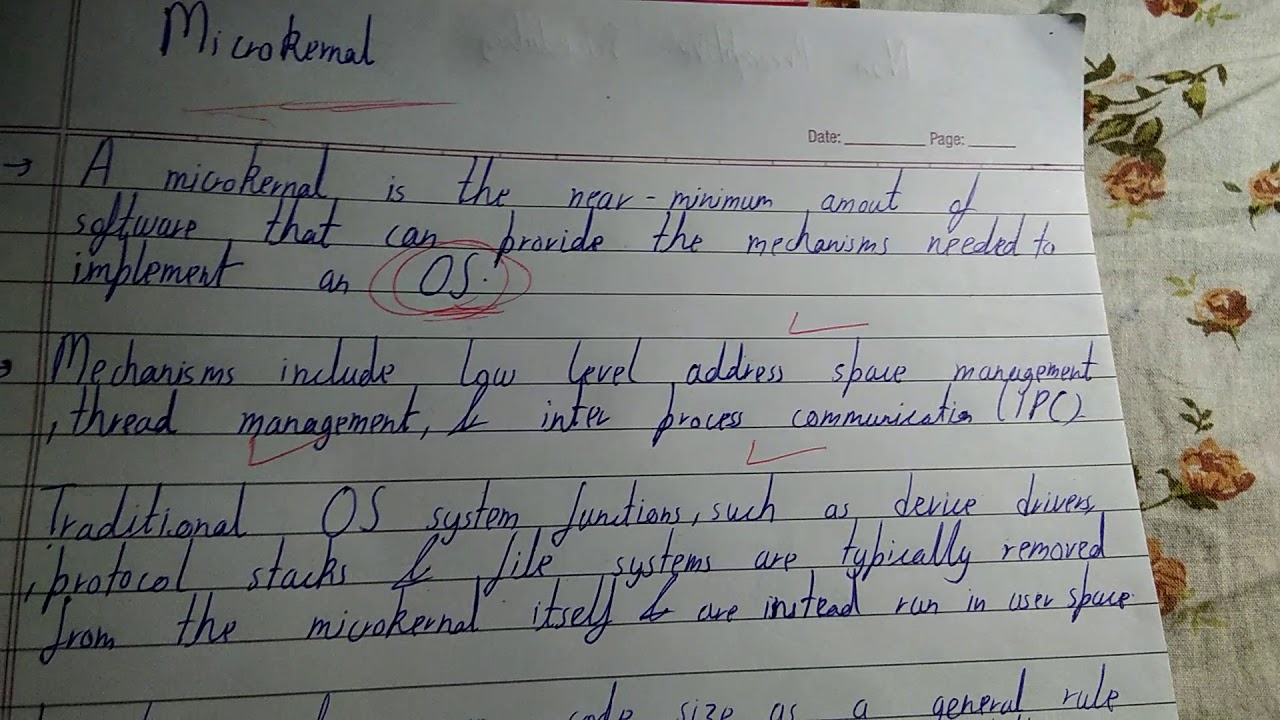 Microkernal
Date: Page:
→ A microkernal is the near-minimum amout of
software that can provide the mechanisms needed to
implement an OS.
Mechanisms include low level address space management
, thread management, & inter process communication (IPC)
Traditional OS system functions, such as device drivers
, protocol stacks & file systems are typically removed
from the microkernal itself & are instead run in user space.
code size as a general rule